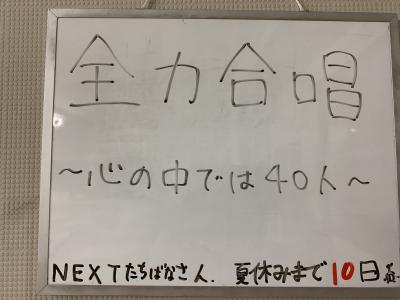 全力合唱
~心の中では40人~
NEXTたちばなさん. 夏休みまで10日